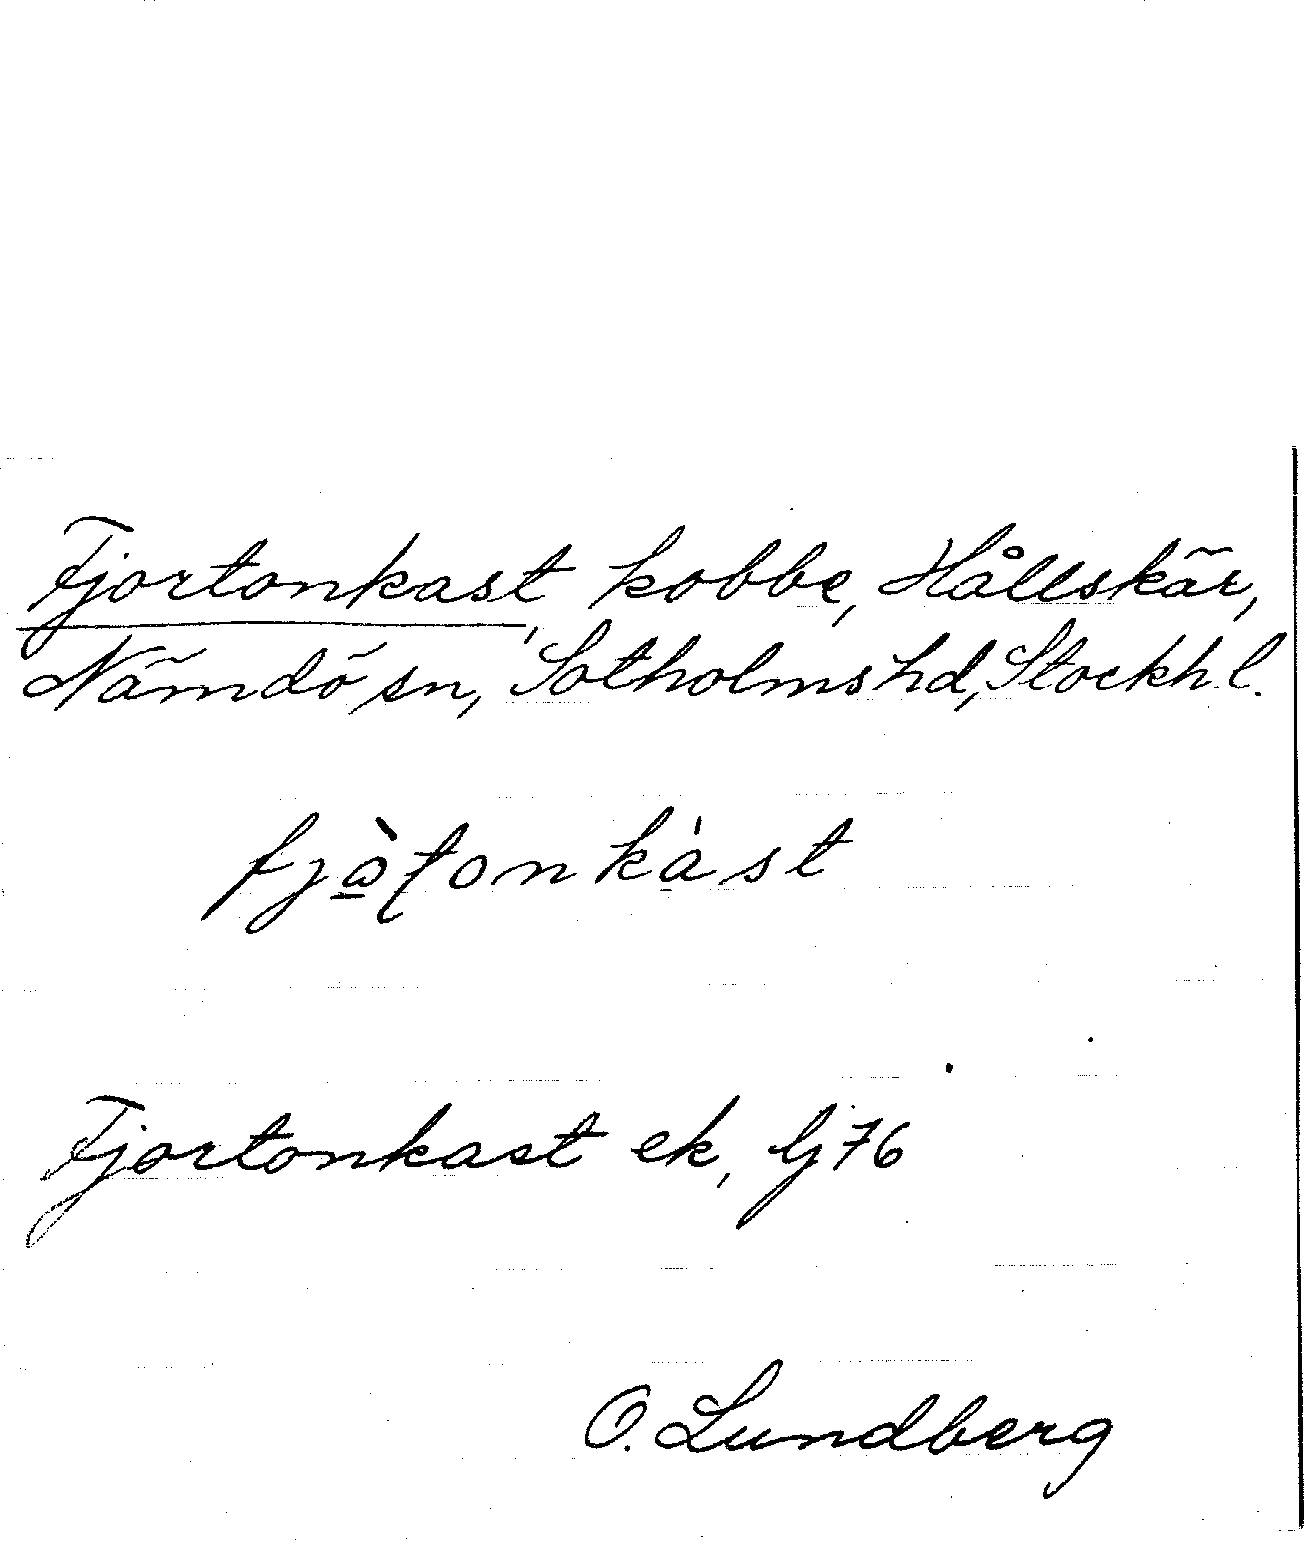 Fjortonkast, kobbe, Hållskär,
Nämdö sn, Sotholms hd, Stockh. l.
fjò̲ʈonká̲st
Fjortonkast ek, bj 76
O. Lundberg